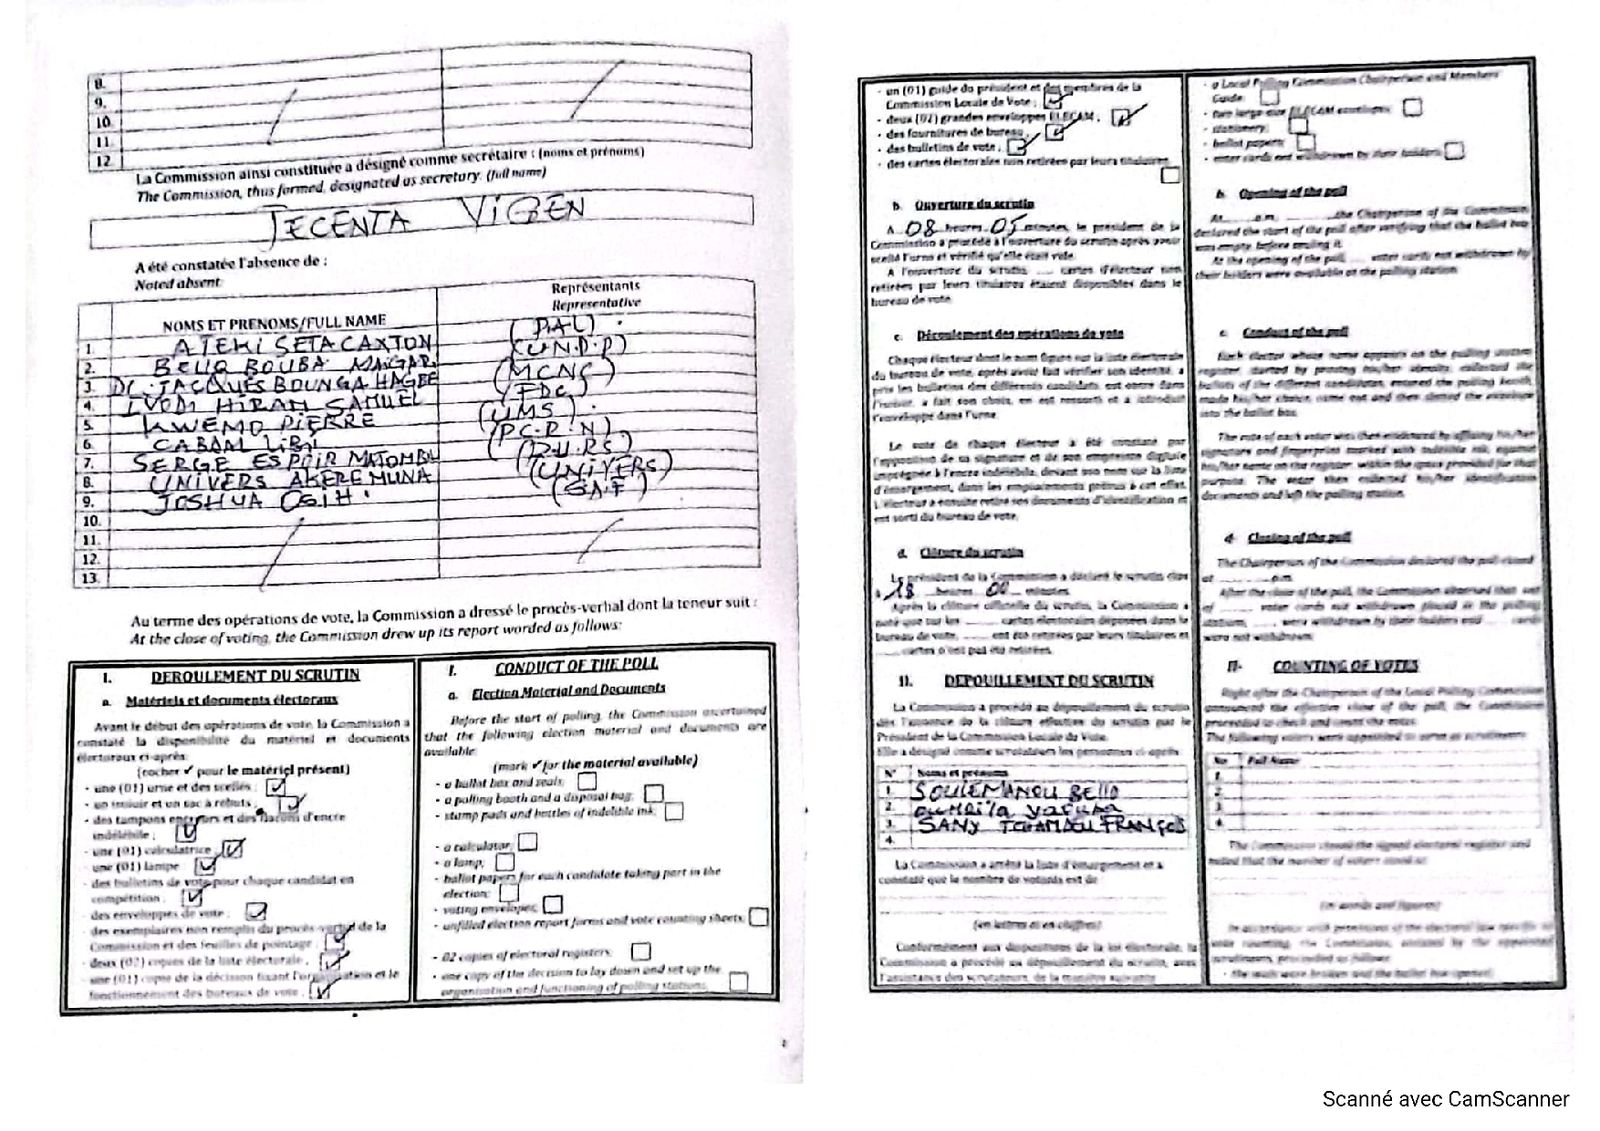 8.
9.
10.
11.
12.
La Commission ainsi constituée a désigné comme secrétaire : (noms et prénoms)
The Commission, thus formed, designated as secretary. (full name)
JECENTA VIGEN
A été constatée l'absence de :
Noted absent
NOMS ET PRENOMS/FULL NAME
Représentants
Representative
1. ATEKI SETA CAXTON (PAL)
2. BELLO BOUBA MAIGARI (U.N.D.P)
3. Dr. JACQUES BOUNGA HAGBE (MCNC)
4. IYODI HIRAM SAMUEL (FDC)
5. KWEMO PIERRE (UMS)
6. CABRAL LIBII (P.C.R.N)
7. SERGE ESPOIR MATOMBA
8. UNIVERS AKERE MUNA (UNIVERS)
9. JOSHUA OSIH
10.
11.
12.
13.
Au terme des opérations de vote, la Commission a dressé le procès-verbal dont la teneur suit :
At the close of voting, the Commission drew up its report worded as follows:
I. DEROULEMENT DU SCRUTIN
a. Matériels et documents électoraux
Avant le début des opérations de vote, la Commission a
constaté la disponibilité du matériel et documents
électoraux ci-après:
(cocher ✓ pour le matériel présent)
- une (01) urne et des scellés;
- un isoloir et un sac à rebuts ;
- des tampons encreurs et des flacons d'encre
indélébile ;
- une (01) calculatrice
- une (01) lampe
- des bulletins de vote pour chaque candidat en
compétition ;
- des enveloppes de vote ;
- des exemplaires non remplis du procès-verbal de la
Commission et des feuilles de pointage ;
- deux (02) copies de la liste électorale ;
- une (01) copie de la décision fixant l'organisation et le
fonctionnement des bureaux de vote ;
I. CONDUCT OF THE POLL
a. Election Material and Documents
Before the start of polling, the Commission ascertained
that the following election material and documents are
available:
(mark ✓ for the material available)
- a ballot box and seals;
- a polling booth and a disposal bag;
- stamp pads and bottles of indelible ink;
- a calculator;
- a lamp;
- ballot papers for each candidate taking part in the
election;
- voting envelopes;
- unfilled election report forms and vote counting sheets;
- 02 copies of electoral registers;
- one copy of the decision to lay down and set up the
organisation and functioning of polling stations;
- un (01) guide du président et des membres de la
Commission Locale de Vote ;
- deux (02) grandes enveloppes ELECAM ;
- des fournitures de bureau ;
- des bulletins de vote ;
- des cartes électorales non retirées par leurs titulaires
b. Ouverture du scrutin
A 08 heures 05 minutes, le président de la
Commission a procédé à l'ouverture du scrutin après avoir
scellé l'urne et vérifié qu'elle était vide.
A l'ouverture du scrutin, .... cartes d'électeur non
retirées par leurs titulaires étaient disponibles dans le
bureau de vote.
c. Déroulement des opérations de vote
Chaque électeur dont le nom figure sur la liste électorale
du bureau de vote, après avoir fait vérifier son identité, a
pris les bulletins des différents candidats, est entré dans
l'isoloir, a fait son choix, en est ressorti et a introduit
l'enveloppe dans l'urne.
Le vote de chaque électeur a été constaté par
l'apposition de sa signature et de son empreinte digitale
imprégnée à l'encre indélébile, devant son nom sur la liste
d'émargement, dans les emplacements prévus à cet effet.
L'électeur a ensuite retiré ses documents d'identification et
est sorti du bureau de vote.
d. Clôture du scrutin
Le président de la Commission a déclaré le scrutin clos
à 18 heures 00 minutes.
Après la clôture officielle du scrutin, la Commission a
noté que sur les ........ cartes électorales déposées dans le
bureau de vote, ........ ont été retirées par leurs titulaires et
........ cartes n'ont pas été retirées.
II. DEPOUILLEMENT DU SCRUTIN
La Commission a procédé au dépouillement du scrutin
dès l'annonce de la clôture effective du scrutin par le
Président de la Commission Locale de Vote.
Elle a désigné comme scrutateurs les personnes ci-après
N° Noms et prénoms
1. SOULEMANOU BELLO
2.
3. SANY FRANÇOIS
4.
La Commission a arrêté la liste d'émargement et a
constaté que le nombre de votants est de
(en lettres et en chiffres)
Conformément aux dispositions de la loi électorale, la
Commission a procédé au dépouillement du scrutin, avec
l'assistance des scrutateurs, de la manière suivante
- a Local Polling Commission Chairperson and Members'
Guide
- two large-size ELECAM envelopes
- stationery;
- ballot papers
- voter cards not withdrawn by their holders
b. Opening of the poll
At ...... a.m. ........, the Chairperson of the Commission
declared the start of the poll after verifying that the ballot box
was empty, before sealing it.
At the opening of the poll, .... voter cards not withdrawn by
their holders were available at the polling station.
c. Conduct of the poll
Each elector whose name appears on the polling station
ballots of the different candidates, entered the polling booth,
made his/her choice, came out and then slotted the envelope
into the ballot box.
The vote of each voter was then evidenced by affixing his/her
signature and fingerprint marked with indelible ink, against
his/her name on the register, within the space provided for that
purpose. The voter then collected his/her identification
documents and left the polling station.
d. Closing of the poll
The Chairperson of the Commission declared the poll closed
at ............ p.m.
After the close of the poll, the Commission observed that out
of ........ voter cards not withdrawn placed in the polling
station, ...... were withdrawn by their holders and ...... cards
were not withdrawn.
II- COUNTING OF VOTES
Right after the Chairperson of the Local Polling Commission
announced the effective close of the poll, the Commission
proceeded to check and count the votes.
The following voters were appointed to serve as scrutineers:
No Full Name
1.
2.
3.
4.
The Commission closed the signed electoral register and
noted that the number of voters stood at:
(in words and figures)
- the seals were broken and the ballot box opened;
Scanné avec CamScanner